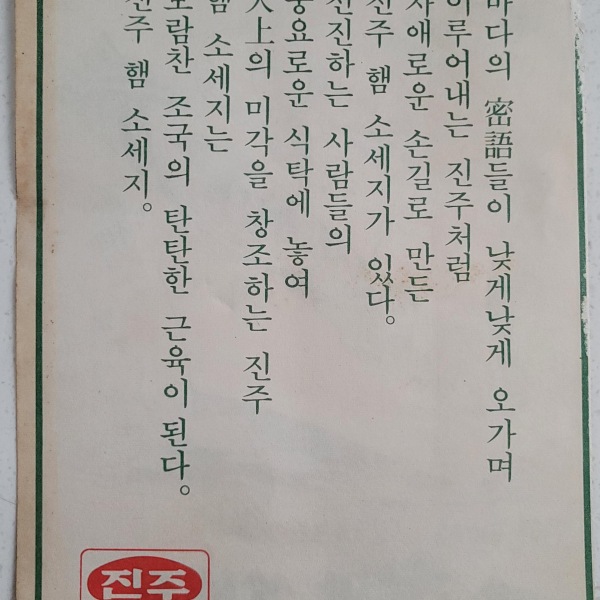 바다의 密語들이 낮게낮게 오가며
이루어내는 진주처럼
자애로운 손길로 만든
진주 햄 소세지가 있다。
전진하는 사람들의
풍요로운 식탁에 놓여
天上의 미각을 창조하는 진주
햄 소세지는
보람찬 조국의 탄탄한 근육이 된다。
진주 햄 소세지。
진주